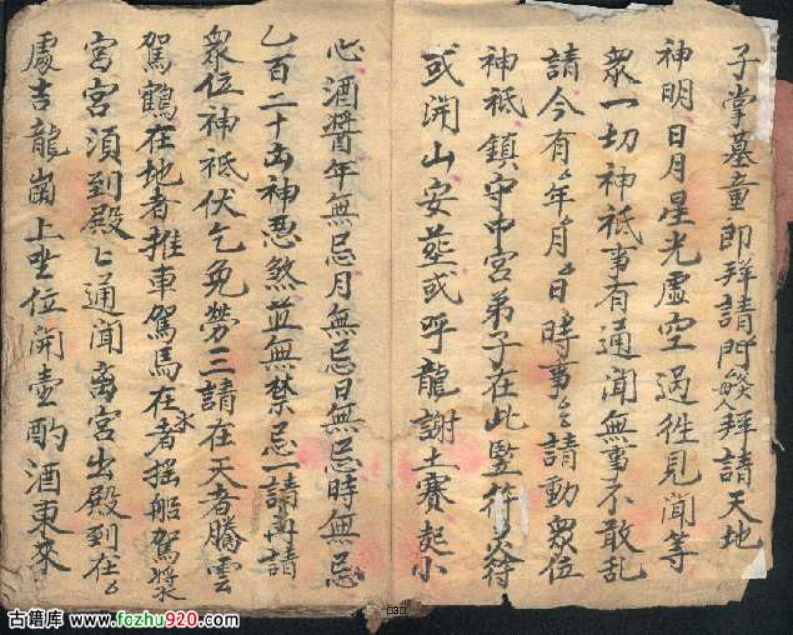 子掌墓童郎拜請門ミ拜請天地
神明日月星光虛空過徃見聞等
衆一切神祇事有通聞無事不敢乱
請今有ミ年ミ月ミ日ミ時事ミ請動衆位
神祇鎮守中宮弟子在此竪符炎符
或開山安坟或呼龍謝土賽起小
心酒醬年無忌月無忌日無忌時無忌
乙百二十凶神恶煞並無禁忌一請再請
衆位神祇伏乞免勞三請在天者騰雲
駕鶴在地者推車駕馬在水者揺船駕漿
宮宮須到殿ミ通聞离宮出殿到在ミ
處吉龍崗上坐位開壺酌酒東來
古籍库 www.fozhu920.com